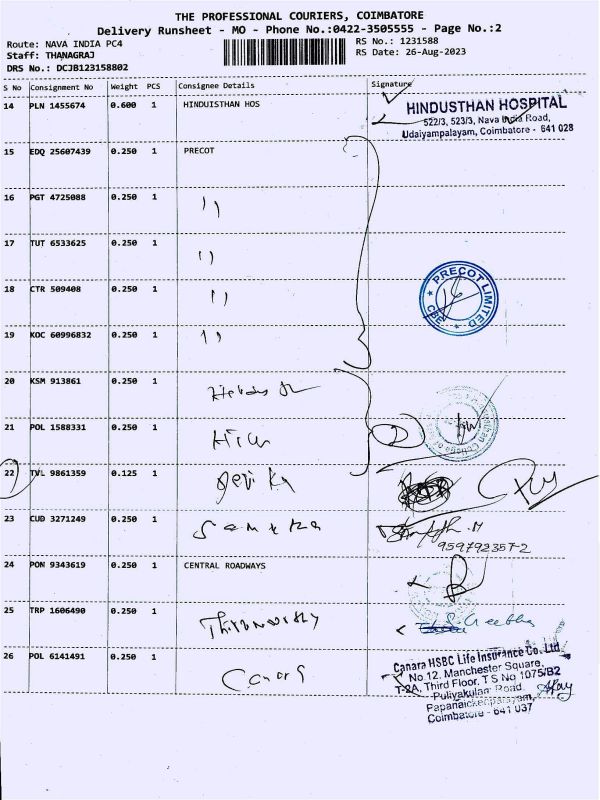 THE PROFESSIONAL COURIERS, COIMBATORE
Delivery Runsheet - MO - Phone No.:0422-3505555 - Page No.:2
Route: NAVA INDIA PC4
RS No.: 1231588
Staff: THANAGRAJ
RS Date: 26-Aug-2023
DRS No.: DCJB123158802
S No Consignment No Weight PCS Consignee Details Signature
14 PLN 1455674 0.600 1 HINDUISTHAN HOS
HINDUSTHAN HOSPITAL
522/3, 523/3, Nava India Road,
Udaiyampalayam, Coimbatore - 641 028
15 EDQ 25607439 0.250 1 PRECOT
16 PGT 4725088 0.250 1 ))
17 TUT 6533625 0.250 1 ))
18 CTR 509408 0.250 1 ))
PRECOT LIMITED
CBE
19 KOC 60996832 0.250 1 ))
20 KSM 913861 0.250 1
21 POL 1588331 0.250 1
2
22 TVL 9861359 0.125 1
23 CUD 3271249 0.250 1
9597923572
24 PON 9343619 0.250 1 CENTRAL ROADWAYS
25 TRP 1606490 0.250 1
26 POL 6141491 0.250 1 Canara
Canara HSBC Life Insurance Co. Ltd
No 12, Manchester Square,
T-2A, Third Floor, T S No 1075/B2
Puliyakulam Road,
Papanaickenpalayam,
Coimbatore - 641 037